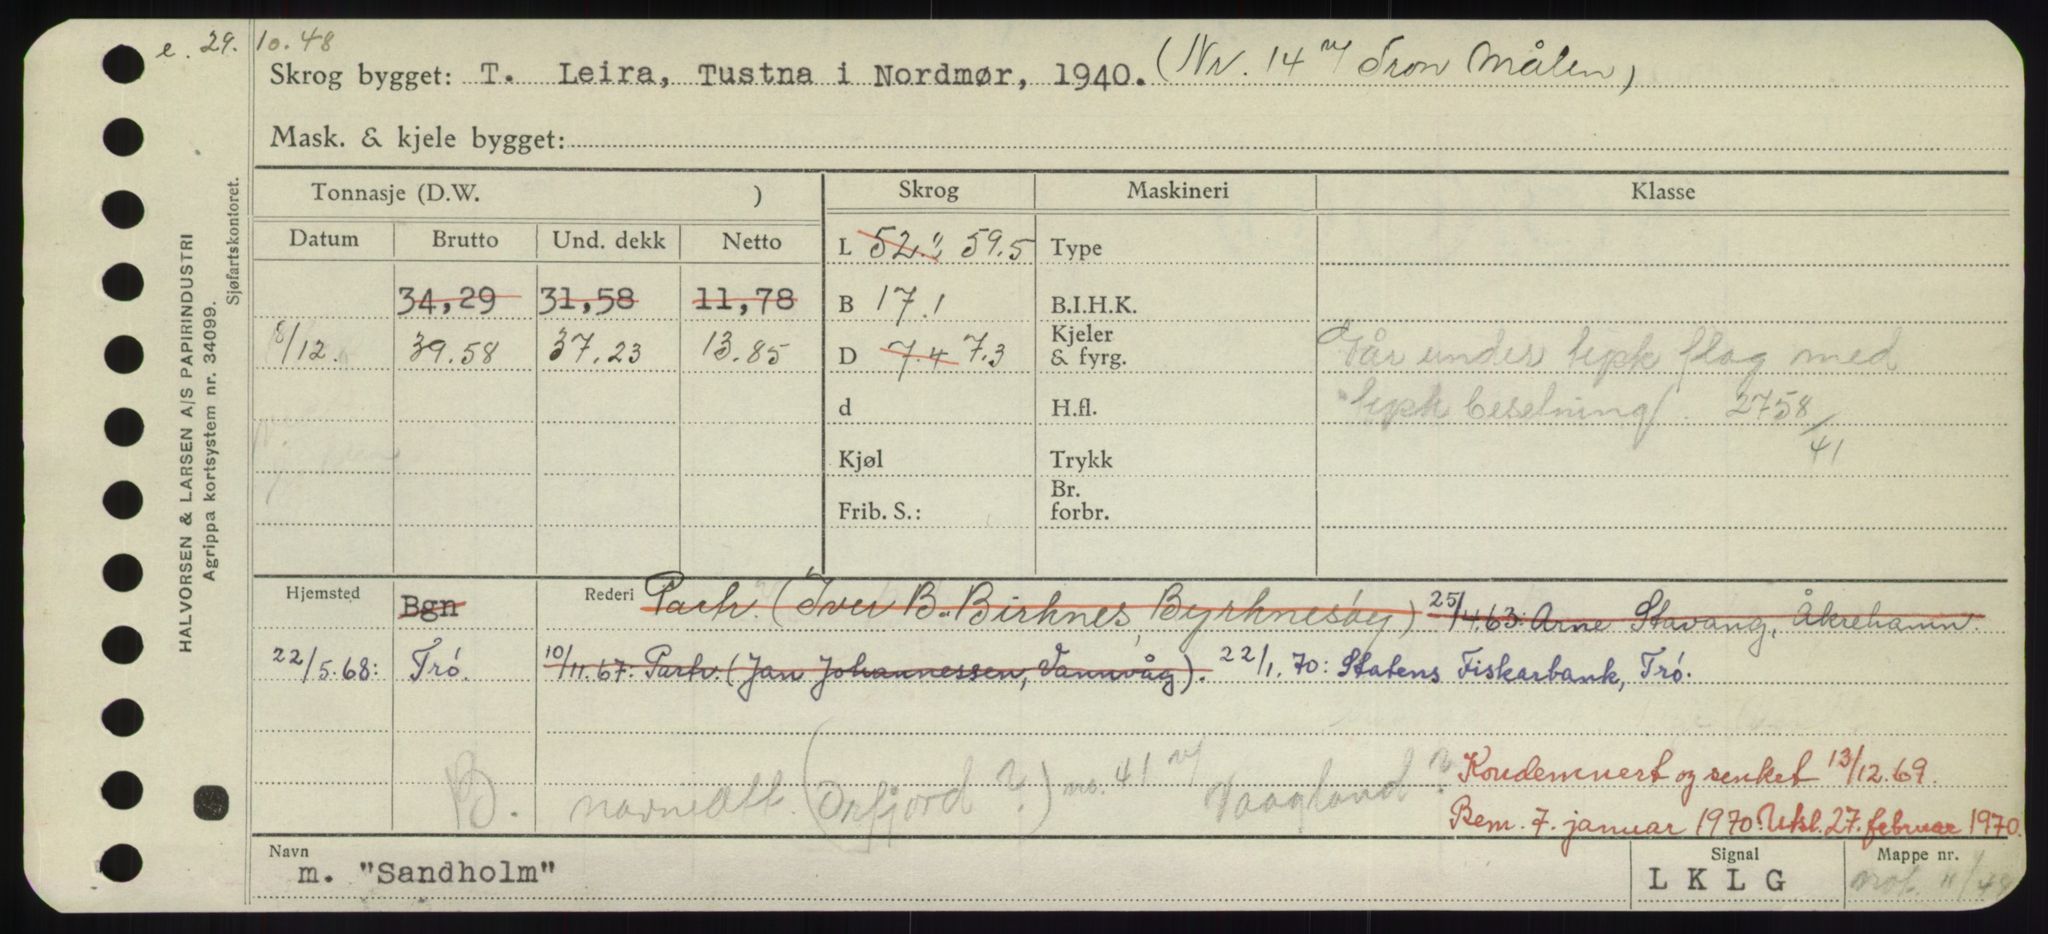 e. 29. 10. 48
Skrog bygget: T. Leira, Tustna i Nordmør, 1940. (Nr. 14 Tron Målen)
Mask. & kjele bygget:
Tonnasje (D.W. )
Skrog
Maskineri
Klasse
Datum Brutto Und. dekk Netto
L 52." 59.5 Type
34,29 31,58 11,78
B 17.1 B.I.H.K.
8/12. 39.58 37.23 13.85
D 7.4 7.3 Kjeler & fyrg.
Går under tysk flag med
d H.fl.
tysk besetning. 2758/41
Kjøl Trykk
Frib. S.: Br. forbr.
Hjemsted Bgn Rederi Parh. (Iver B. Birknes, Byrknesøy) 25/4.63: Arne Stavang, Åkrehamn.
22/5.68: Trø. 10/11.67: Parh. (Jan Johannessen, Vannvåg). 22/1.70: Statens Fiskarbank, Trø.
B. navnedtt. (Orfjord?) no. 41 Vaagland?
Kondemnert og senket 13/12.69.
Bem. 7. januar 1970. Utsl. 27. februar 1970.
Navn m. "Sandholm"
Signal L K L G
Mappe nr. 11/48
HALVORSEN & LARSEN A/S PAPIRINDUSTRI
Agrippa kortsystem nr. 34099.
Sjøfartskontoret.